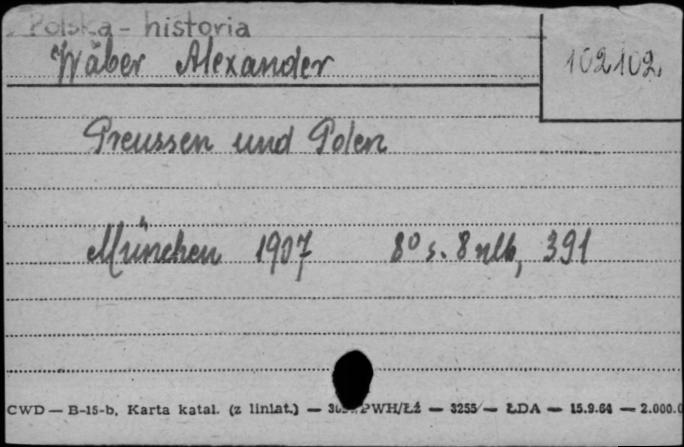 Polska - historia
Wäber Alexander
102102.
Preussen und Polen
München 1907 8° s. 8 nlb, 391
CWD — B-15-b. Karta katal. (z liniat.) — PWH/Łź — 3255 — ŁDA — 15.9.64 — 2.000.0